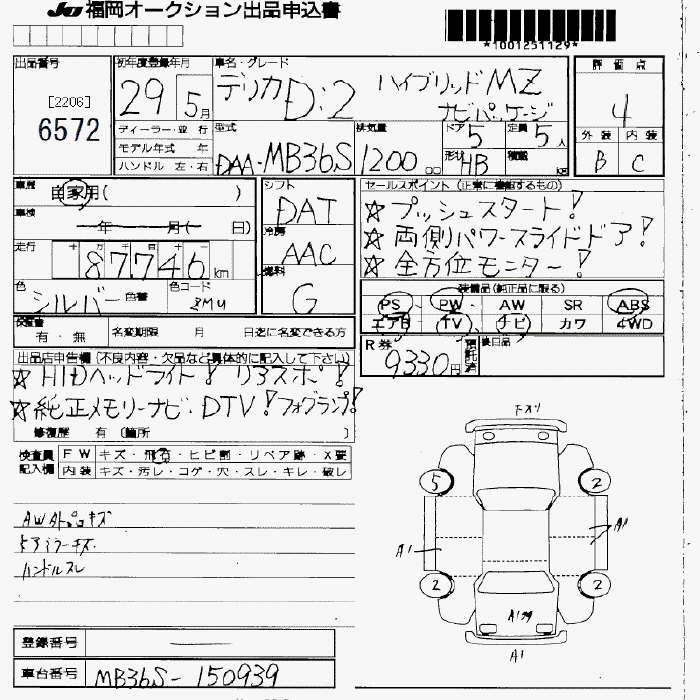 JU 福岡オークション出品申込書
*1001251129*
出品番号
[2206]
6572
初年度登録年月
29 5月
車名・グレード
デリカD:2 ハイブリッドMZ
ナビパッケージ
評価点
4
外装 内装
B C
ディーラー・並行
モデル年式 年
ハンドル 左・右
型式
DAA-MB36S
排気量
1200 cc
ドア 5
定員 5人
形状 HB
積載 kg
車歴
自家用( )
車検
年 月( 日)
走行
十 万 千 百 十 一
87,746 km
色
シルバー 色番
色コード
ZMU
シフト
DAT
冷房
AAC
燃料
G
セールスポイント (正常に機能するもの)
☆プッシュスタート!
☆両側パワースライドドア!
☆全方位モニター!
装備品(純正品に限る)
PS PW AW SR ABS
エアB TV ナビ カワ 4WD
検査書
有・無
名変期限 月 日迄に名変できる方
R券 9330円
預託済
後日品
出品店申告欄 (不良内容・欠品など具体的に記入して下さい)
☆HIDヘッドライト! リアスポ!
☆純正メモリーナビ、DTV! フォグランプ!
修復歴 有 (箇所 )
検査員
記入欄
FW キズ・飛石・ヒビ割・リペア跡・X要
内装 キズ・汚レ・コゲ・穴・スレ・キレ・破レ
ハンドルスレ
5 2
A1 A1
2 2
A1
登録番号
車台番号 MB36S-150939